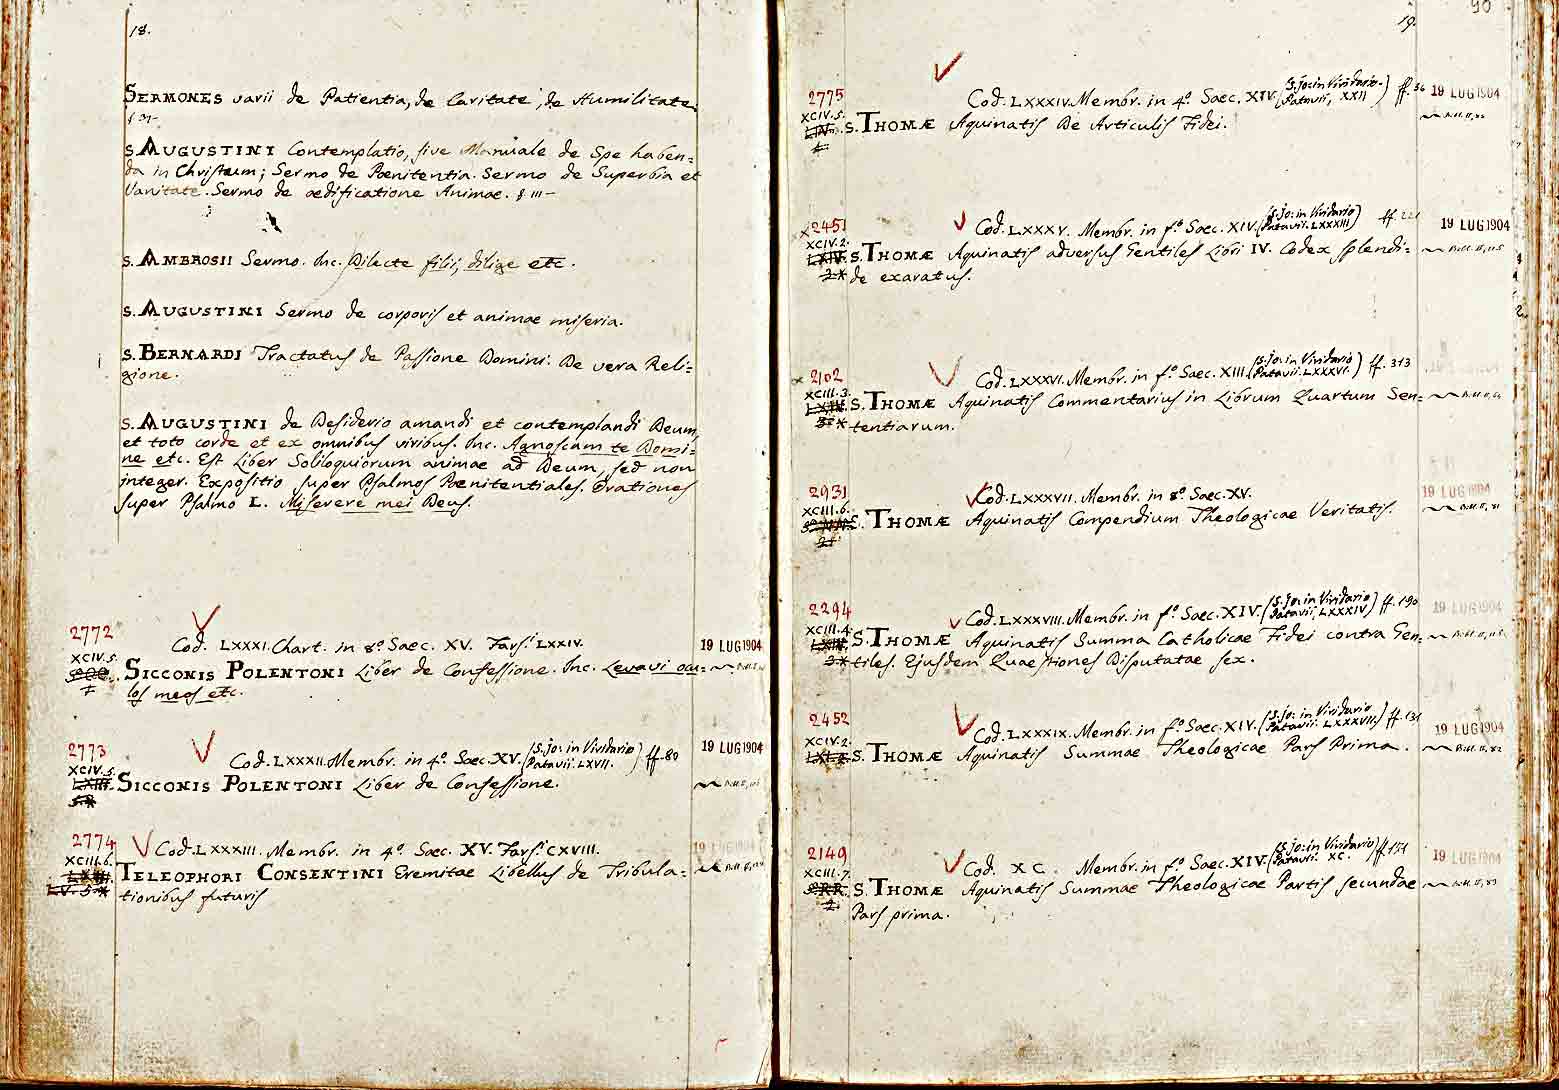 18.
SERMONES varii de Patientia, de Caritate, de Humilitate.
S. AUGUSTINI Contemplatio, sive Manuale de Spe haben=
da in Christum; Sermo de Poenitentia. Sermo de Superbia et
Vanitate. Sermo de aedificatione Animae.
S. AMBROSII Sermo. Inc. Dilecte fili, dilige etc.
S. AUGUSTINI Sermo de corporis et animae miseria.
S. BERNARDI Tractatus de Passione Domini. De vera Reli=
gione.
S. AUGUSTINI de Desiderio amandi et contemplandi Deum,
et toto corde et ex omnibus viribus. Inc. Agnoscam te Domi=
ne etc. Est Liber Soliloquiorum animae ad Deum, sed non
integer. Expositio super Psalmos Poenitentiales. Orationes
super Psalmo L. Miserere mei Deus.
2772
Cod. LXXXI. Chart. in 8º Saec. XV. Fars. LXXIV.
19 LUG 1904
XCIV. 5.
SICCONIS POLENTONI Liber de Confessione. Inc. Levavi ocu=
los meos etc.
2773
Cod. LXXXII. Membr. in 4º. Saec. XV. (S. Jo: in Viridario
Patavii. LXVII.) ff. 80
19 LUG 1904
XCIV. 5.
SICCONIS POLENTONI Liber de Confessione.
2774
Cod. LXXXIII. Membr. in 4º. Saec. XV. Fars. CXVIII.
19 LUG 1904
XCIII. 6.
TELEOPHORI CONSENTINI Eremitae Libellus de Tribula=
tionibus futuris
19.
90
2775
Cod. LXXXIV. Membr. in 4º. Saec. XIV. (S. Jo: in Viridario.
Patavii, XXII) ff. 36
19 LUG 1904
XCIV. 5.
S. THOMÆ Aquinatis De Articulis Fidei.
2451
Cod. LXXXV. Membr. in fº. Saec. XIV. (S. Jo: in Viridario
Patavii. LXXXIII)
19 LUG 1904
XCIV. 2.
S. THOMÆ Aquinatis adversus Gentiles Libri IV. Codex splendi=
de exaratus.
2102
Cod. LXXXVI. Membr. in fº. Saec. XIII. (S. Jo: in Viridario
Patavii. LXXXVI.) ff. 313
XCIII. 3.
S. THOMÆ Aquinatis Commentarius in Librum Quartum Sen=
tentiarum.
2931
Cod. LXXXVII. Membr. in 8º. Saec. XV.
19 LUG 1904
XCIII. 6.
S. THOMÆ Aquinatis Compendium Theologicae Veritatis.
2294
Cod. LXXXVIII. Membr. in fº. Saec. XIV. (S. Jo: in Viridario
Patavii, LXXXIV) ff. 190
19 LUG 1904
XCIII. 4.
S. THOMÆ Aquinatis Summa Catholicae Fidei contra Gen=
tiles. Ejusdem Quaestiones Disputatae sex.
2452
Cod. LXXXIX. Membr. in fº. Saec. XIV. (S. Jo: in Viridario
Patavii. LXXXVII.) ff. 131
19 LUG 1904
XCIV. 2.
S. THOMÆ Aquinatis Summae Theologicae Pars Prima.
2149
Cod. XC. Membr. in fº. Saec. XIV. (S. Jo: in Viridario
Patavii. XC.) ff. 151
19 LUG 1904
XCIII. 7.
S. THOMÆ Aquinatis Summae Theologicae Partis secundae
Pars prima.